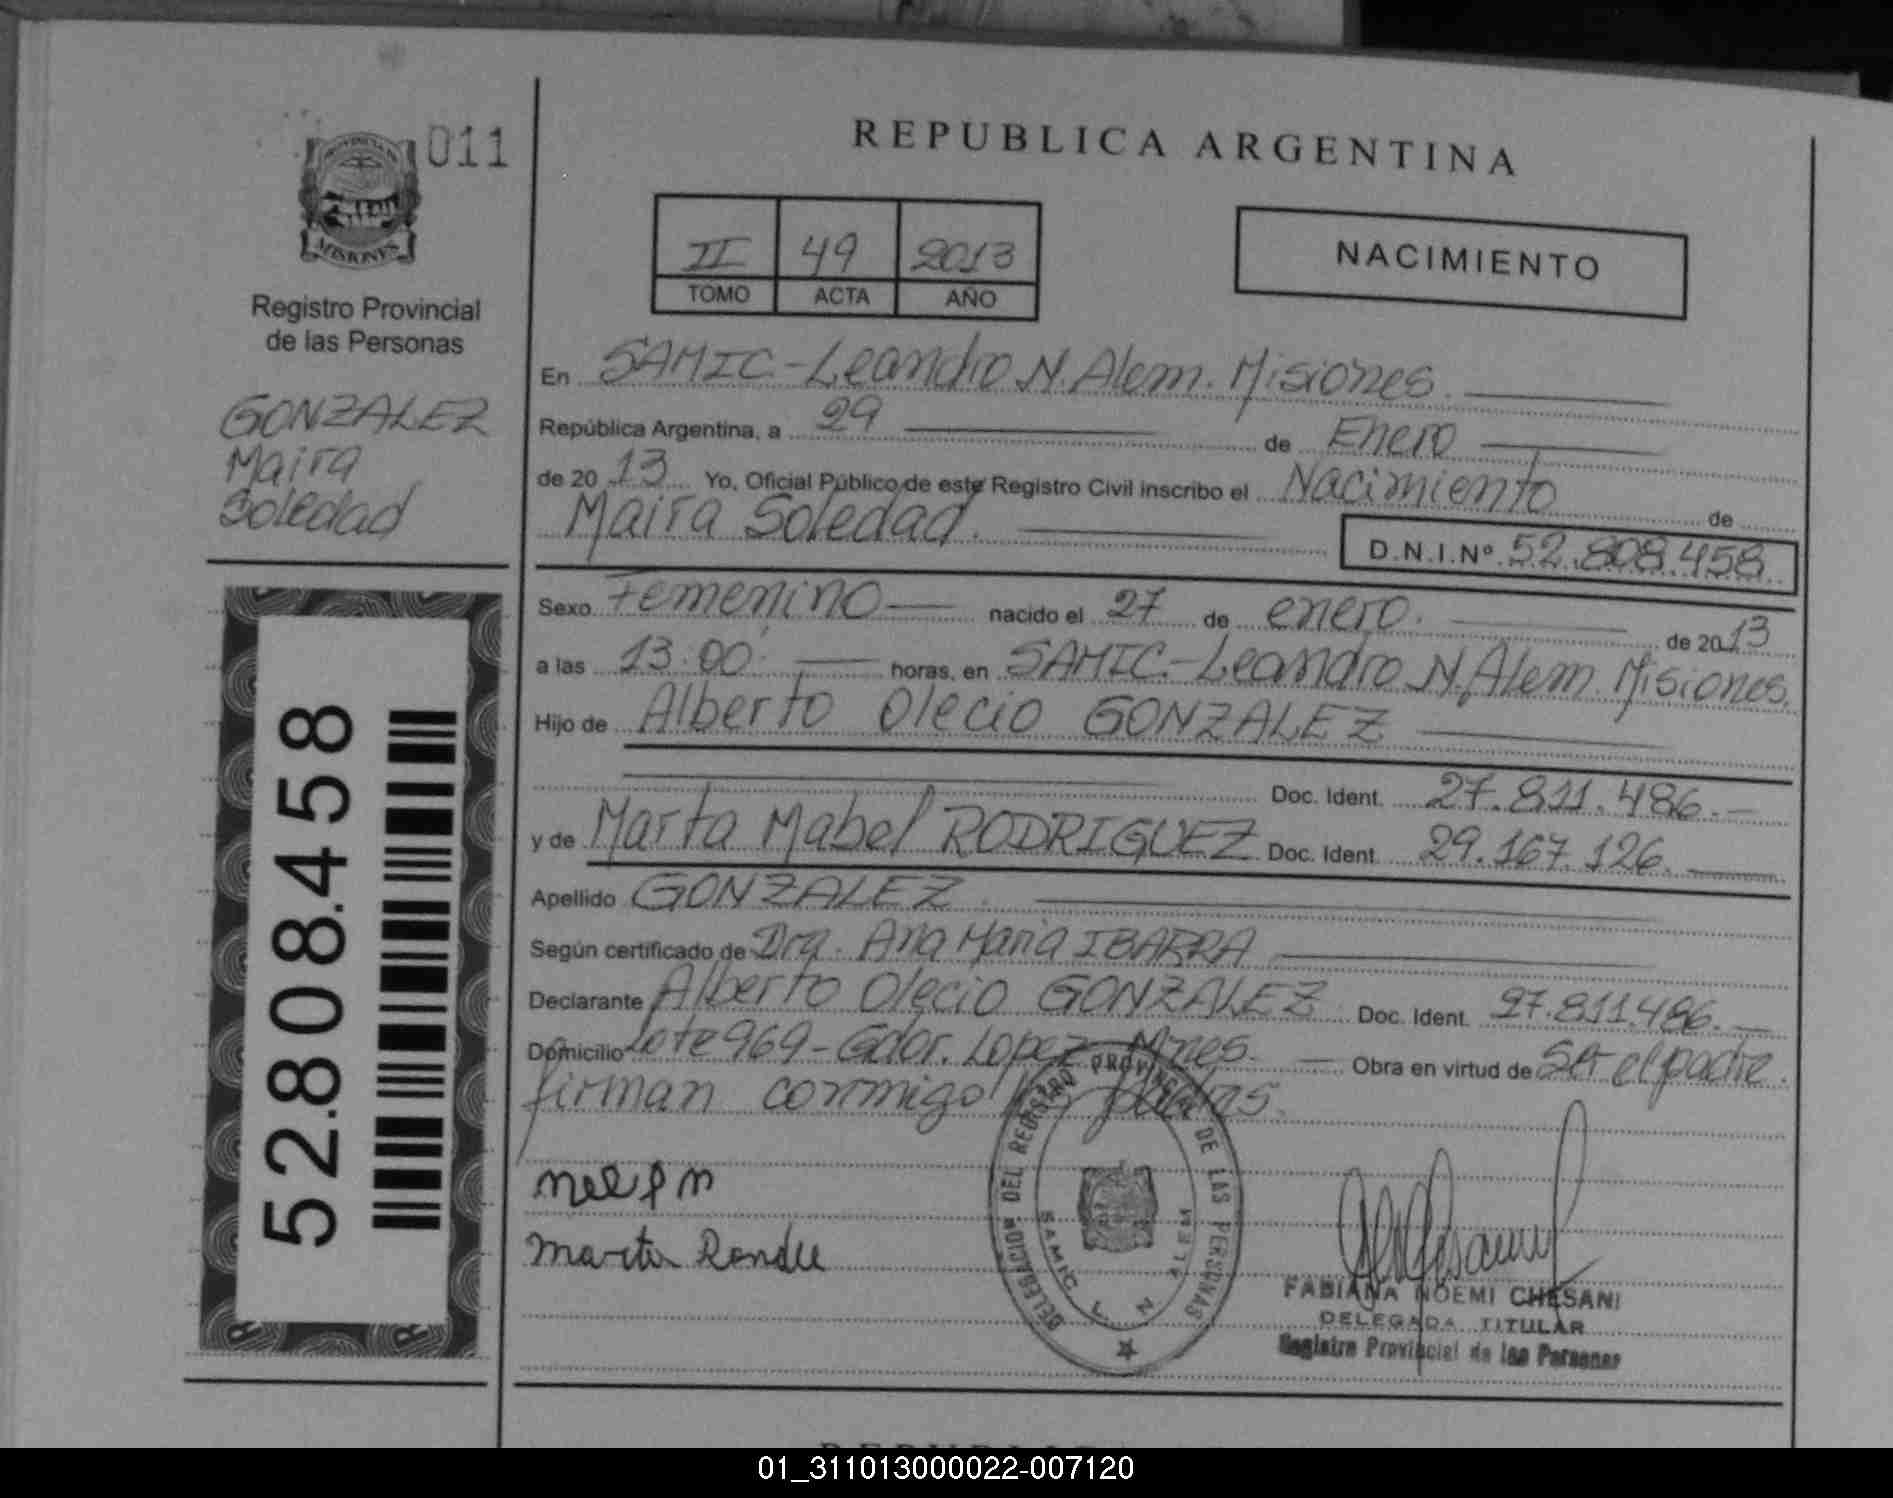 011
MISIONES
Registro Provincial
de las Personas
GONZALEZ
Maira
Soledad
52.808.458
REPUBLICA ARGENTINA
II 49 2013
TOMO ACTA AÑO
NACIMIENTO
En SAMIC-Leandro N. Alem. Misiones.
República Argentina, a 29 de Enero
de 2013 Yo, Oficial Público de este Registro Civil inscribo el Nacimiento de
Maira Soledad. D.N.I.Nº 52.808.458
Sexo Femenino nacido el 27 de enero. de 2013
a las 13:00 horas, en SAMIC.-Leandro N. Alem. Misiones.
Hijo de Alberto Olecio GONZALEZ
Doc. Ident. 27.811.486.-
y de Marta Mabel RODRIGUEZ Doc. Ident. 29.167.126.
Apellido GONZALEZ.
Según certificado de Dra. Ana Maria IBARRA
Declarante Alberto Olecio GONZALEZ Doc. Ident. 27.811.486.-
Domicilio Lote 969-Gdor. Lopez Mnes. Obra en virtud de Ser el padre.
firman conmigo los padres.
DELEGACION DEL REGISTRO PROVINCIAL DE LAS PERSONAS
SAMIC L N ALEM
FABIANA NOEMI CHESANI
DELEGADA TITULAR
Registro Provincial de las Personas
01_311013000022-007120